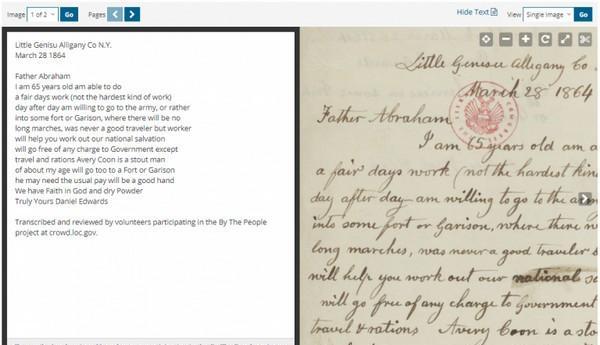 Image 1 of 2 Go Pages Hide Text View Single image Go
Little Genisu Alligany Co N.Y.
March 28 1864
Father Abraham
I am 65 years old am able to do
a fair days work (not the hardest kind of work)
day after day am willing to go to the army, or rather
into some fort or Garison, where there will be no
long marches, was never a good traveler but worker
will help you work out our national salvation
will go free of any charge to Government except
travel and rations Avery Coon is a stout man
of about my age will go too to a Fort or Garison
he may need the usual pay will be a good hand
We have Faith in God and dry Powder
Truly Yours Daniel Edwards
Transcribed and reviewed by volunteers participating in the By The People
project at crowd.loc.gov.
Little Genesee Allegany Co.
March 28 1864
Father Abraham
I am 65 years old am a
a fair days work (not the hardest kin
day after day am willing to go to the arm
into some fort or Garison, where there w
long marches, was never a good traveler
will help you work out our national s
will go free of any charge to Government
travel & rations Avery Coon is a sto